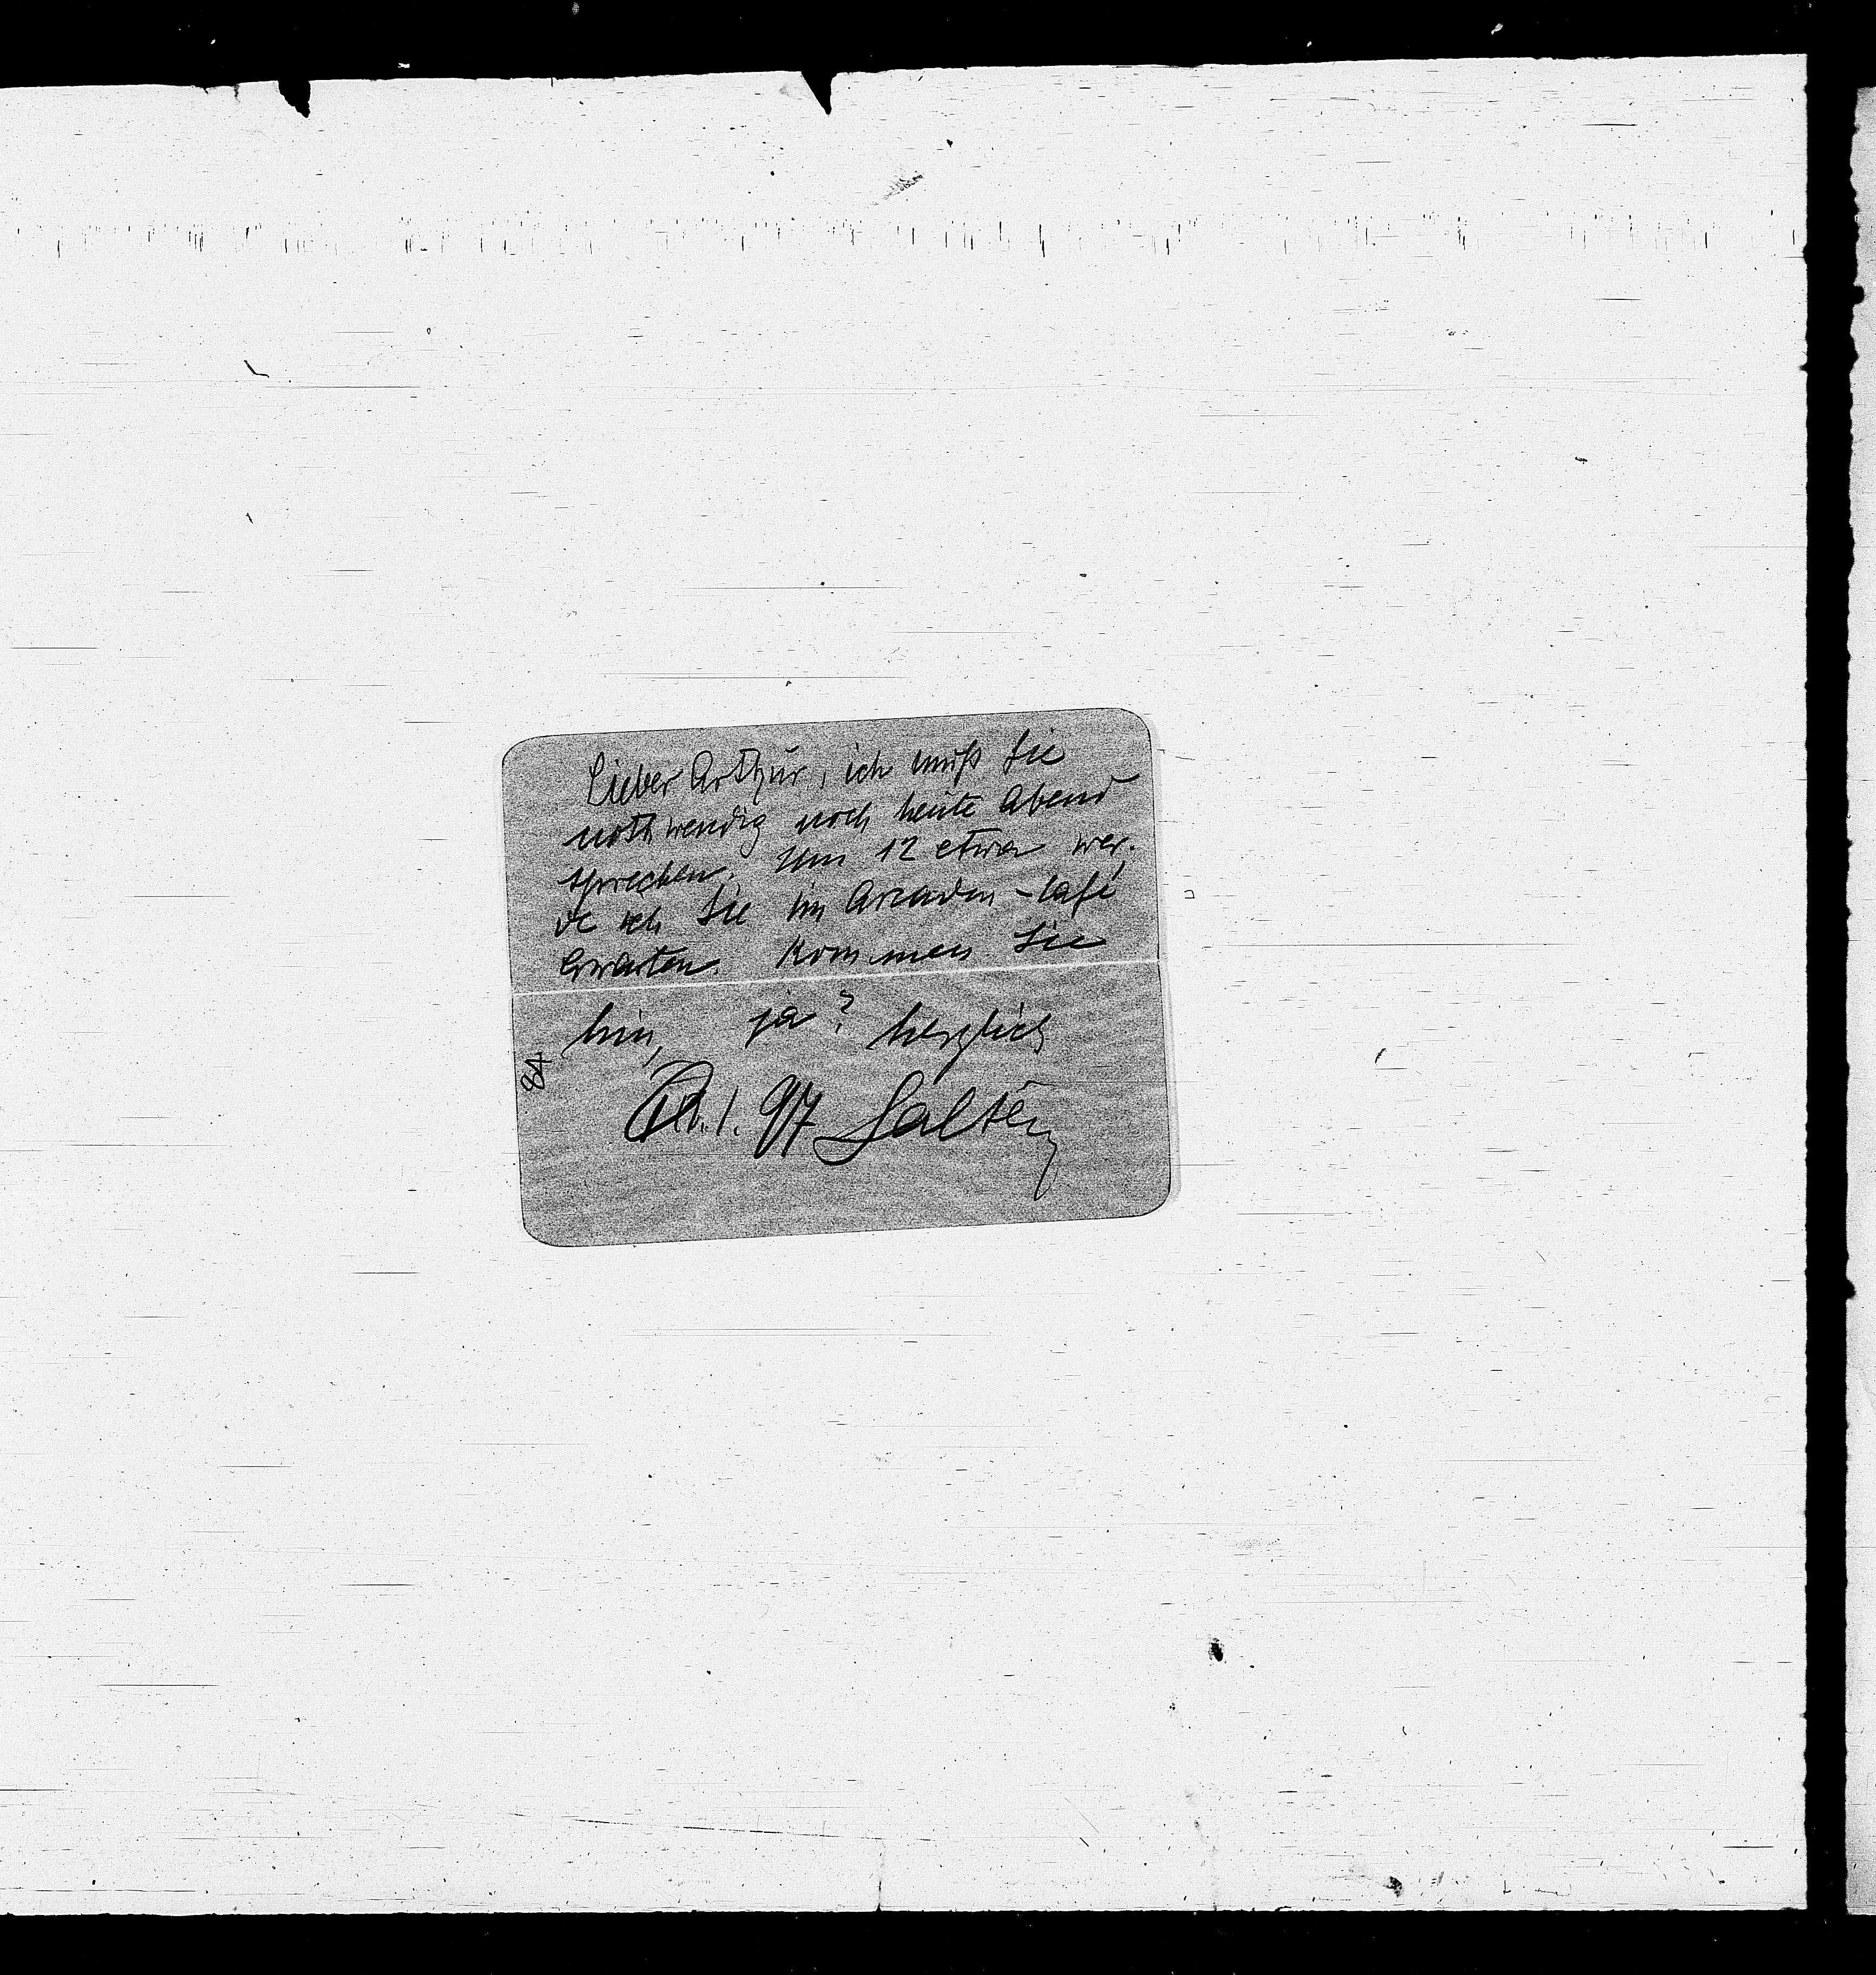 Lieber Arthur, ich muß Sie
nothwendig noch heute Abend
sprechen. Um 12 etwa wer-
de ich Sie im Arcaden-Café
erwarten. Kommen Sie
hin, ja? herzlich
1. 97 Salten
84